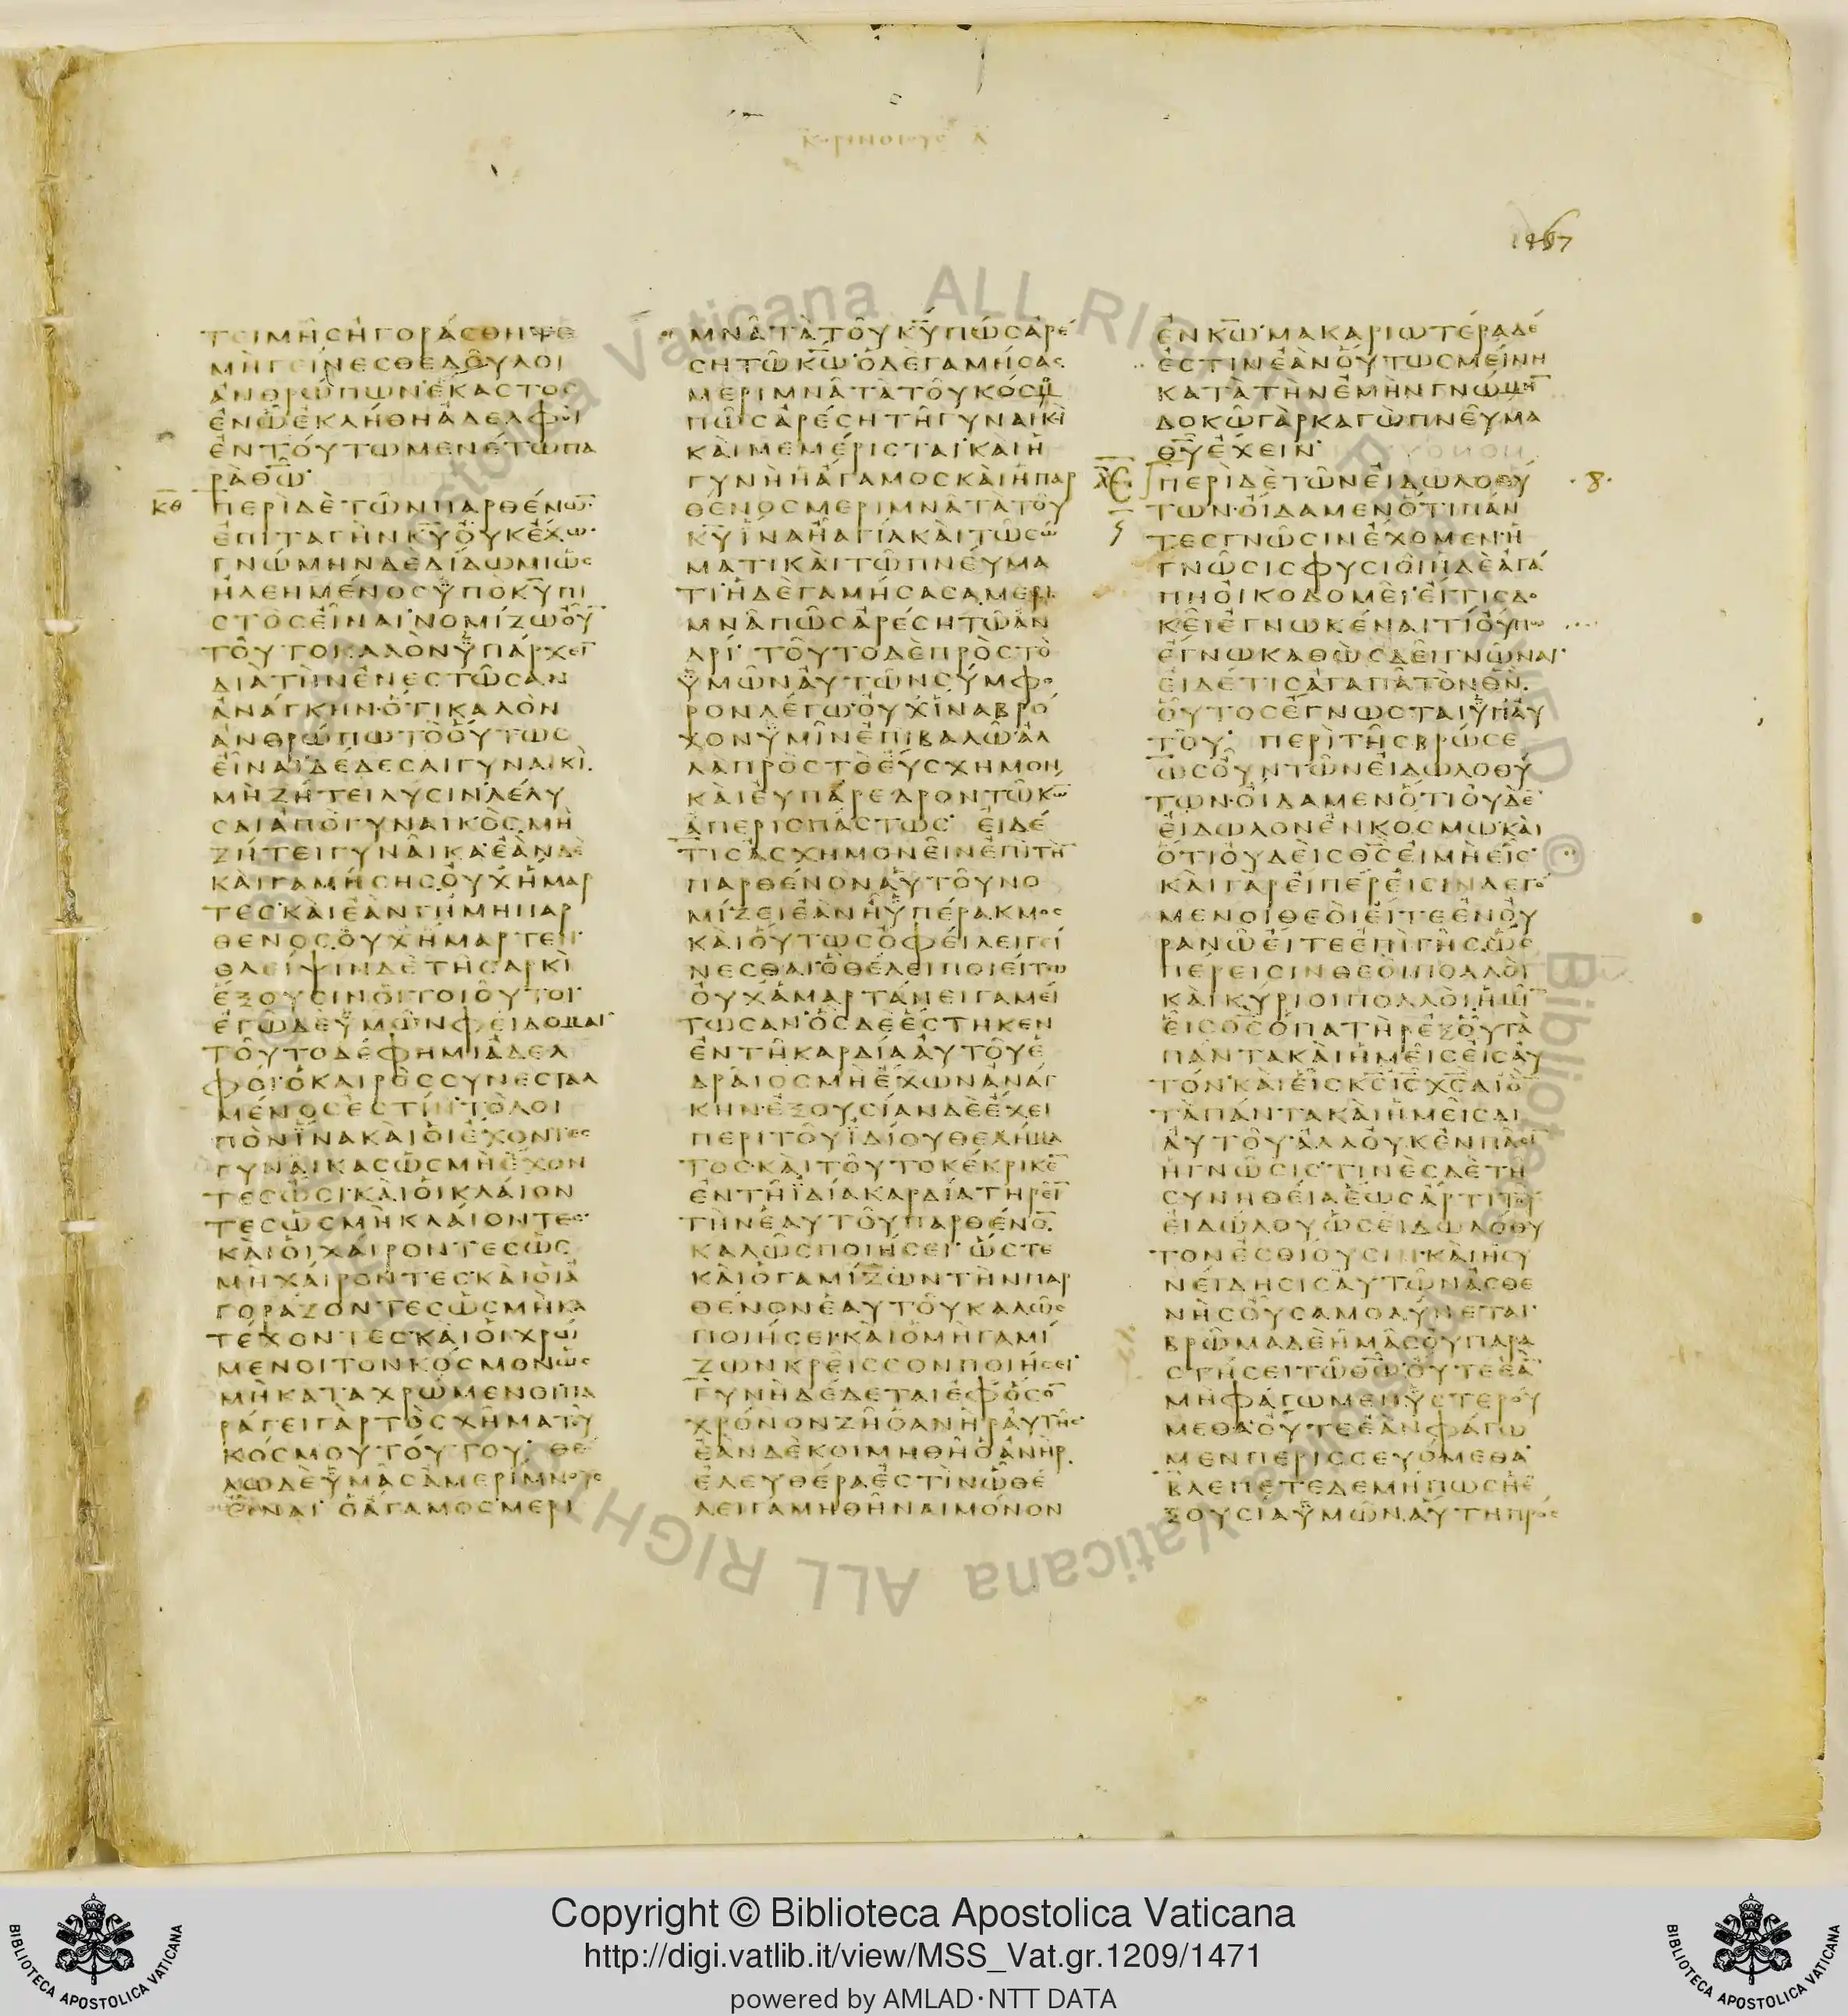 ΚΟΡΙΝΘΙΟΥΣ Α
1467
ΤΕΙΜΗϹΗΓΟΡΑϹΘΗΤΕ
ΜΗΓΕΙΝΕϹΘΕΔΟΥΛΟΙ
ΑΝΘΡΩΠΩΝ·ΕΚΑϹΤΟϹ
ΕΝΩΕΚΛΗΘΗΑΔΕΛΦΟΙ
ΕΝΤΟΥΤΩΜΕΝΕΤΩΠΑ
ΡΑΘΩ̅·
ΚΘ
ΠΕΡΙΔΕΤΩΝΠΑΡΘΕΝΩ̅
ΕΠΙΤΑΓΗΝΚ̅Υ̅ΟΥΚΕΧΩ·
ΓΝΩΜΗΝΔΕΔΙΔΩΜΙΩϹ
ΗΛΕΗΜΕΝΟϹΫΠΟΚ̅Υ̅ΠΙ
ϹΤΟϹΕΙΝΑΙ·ΝΟΜΙΖΩΟΥ̅
ΤΟΥΤΟΚΑΛΟΝΫΠΑΡΧΕΙ̅
ΔΙΑΤΗΝΕΝΕϹΤΩϹΑΝ
ΑΝΑΓΚΗΝ·ΟΤΙΚΑΛΟΝ
ΑΝΘΡΩΠΩΤΟΟΥΤΩϹ
ΕΙΝΑΙ·ΔΕΔΕϹΑΙΓΥΝΑΙΚΙ·
ΜΗΖΗΤΕΙΛΥϹΙΝ·ΛΕΛΥ
ϹΑΙΑΠΟΓΥΝΑΙΚΟϹ·ΜΗ
ΖΗΤΕΙΓΥΝΑΙΚΑ·ΕΑΝΔΕ
ΚΑΙΓΑΜΗϹΗϹΟΥΧΗΜΑΡ
ΤΕϹ·ΚΑΙΕΑΝΓΗΜΗΠΑΡ
ΘΕΝΟϹΟΥΧΗΜΑΡΤΕΝ·
ΘΛΕΙΨΙΝΔΕΤΗϹΑΡΚΙ
ΕΞΟΥϹΙΝΟΙΤΟΙΟΥΤΟΙ·
ΕΓΩΔΕΫΜΩΝΦΕΙΔΟΜΑΙ·
ΤΟΥΤΟΔΕΦΗΜΙΑΔΕΛ
ΦΟΙ·ΟΚΑΙΡΟϹϹΥΝΕϹΤΑΛ
ΜΕΝΟϹΕϹΤΙΝ·ΤΟΛΟΙ
ΠΟΝΪΝΑΚΑΙΟΙΕΧΟΝΤΕϹ
ΓΥΝΑΙΚΑϹΩϹΜΗΕΧΟΝ
ΤΕϹΩϹΙ·ΚΑΙΟΙΚΛΑΙΟΝ
ΤΕϹΩϹΜΗΚΛΑΙΟΝΤΕϹ·
ΚΑΙΟΙΧΑΙΡΟΝΤΕϹΩϹ
ΜΗΧΑΙΡΟΝΤΕϹ·ΚΑΙΟΙΑ
ΓΟΡΑΖΟΝΤΕϹΩϹΜΗΚΑ
ΤΕΧΟΝΤΕϹ·ΚΑΙΟΙΧΡΩ
ΜΕΝΟΙΤΟΝΚΟϹΜΟΝΩϹ
ΜΗΚΑΤΑΧΡΩΜΕΝΟΙ·ΠΑ
ΡΑΓΕΙΓΑΡΤΟϹΧΗΜΑΤΟΥ
ΚΟϹΜΟΥΤΟΥΤΟΥ· ΘΕ
ΛΩΔΕΫΜΑϹΑΜΕΡΙΜΝΟΥϹ
ΕΙΝΑΙ· ΟΑΓΑΜΟϹΜΕΡΙ
ΜΝΑΤΑΤΟΥΚ̅Υ̅ΠΩϹΑΡΕ
ϹΗΤΩΚ̅Ω̅·ΟΔΕΓΑΜΗϹΑϹ
ΜΕΡΙΜΝΑΤΑΤΟΥΚΟϹΜΟΥ
ΠΩϹΑΡΕϹΗΤΗΓΥΝΑΙΚΙ
ΚΑΙΜΕΜΕΡΙϹΤΑΙ·ΚΑΙΗ
ΓΥΝΗΗΑΓΑΜΟϹΚΑΙΗΠΑΡ
ΘΕΝΟϹΜΕΡΙΜΝΑΤΑΤΟΥ
Κ̅Υ̅ΪΝΑΗΑΓΙΑΚΑΙΤΩϹΩ
ΜΑΤΙΚΑΙΤΩΠΝΕΥΜΑ
ΤΙ·ΗΔΕΓΑΜΗϹΑϹΑΜΕΡΙ
ΜΝΑΠΩϹΑΡΕϹΗΤΩΑΝ
ΔΡΙ· ΤΟΥΤΟΔΕΠΡΟϹΤΟ
ΫΜΩΝΑΥΤΩΝϹΥΜΦΟ
ΡΟΝΛΕΓΩ·ΟΥΧΪΝΑΒΡΟ
ΧΟΝΫΜΙΝΕΠΙΒΑΛΩ·ΑΛ
ΛΑΠΡΟϹΤΟΕΥϹΧΗΜΟΝ
ΚΑΙΕΥΠΑΡΕΔΡΟΝΤΩΚ̅Ω̅
ΑΠΕΡΙϹΠΑϹΤΩϹ· ΕΙΔΕ
ΤΙϹΑϹΧΗΜΟΝΕΙΝΕΠΙΤΗ̅
ΠΑΡΘΕΝΟΝΑΥΤΟΥΝΟ
ΜΙΖΕΙΕΑΝΗΫΠΕΡΑΚΜΟϹ
ΚΑΙΟΥΤΩϹΟΦΕΙΛΕΙΓΕΙ
ΝΕϹΘΑΙ·ΟΘΕΛΕΙΠΟΙΕΙΤΩ
ΟΥΧΑΜΑΡΤΑΝΕΙΓΑΜΕΙ
ΤΩϹΑΝ·ΟϹΔΕΕϹΤΗΚΕΝ
ΕΝΤΗΚΑΡΔΙΑΑΥΤΟΥΕ
ΔΡΑΙΟϹΜΗΕΧΩΝΑΝΑΓ
ΚΗΝ·ΕΞΟΥϹΙΑΝΔΕΕΧΕΙ
ΠΕΡΙΤΟΥΪΔΙΟΥΘΕΛΗΜΑ
ΤΟϹ·ΚΑΙΤΟΥΤΟΚΕΚΡΙΚΕ̅
ΕΝΤΗΪΔΙΑΚΑΡΔΙΑΤΗΡΕΙ̅
ΤΗΝΕΑΥΤΟΥΠΑΡΘΕΝΟ̅·
ΚΑΛΩϹΠΟΙΗϹΕΙ· ΩϹΤΕ
ΚΑΙΟΓΑΜΙΖΩΝΤΗΝΠΑΡ
ΘΕΝΟΝΕΑΥΤΟΥΚΑΛΩϹ
ΠΟΙΗϹΕΙ·ΚΑΙΟΜΗΓΑΜΙ
ΖΩΝΚΡΕΙϹϹΟΝΠΟΙΗϹΕΙ·
ΓΥΝΗΔΕΔΕΤΑΙΕΦΟϹΟ̅
ΧΡΟΝΟΝΖΗΟΑΝΗΡΑΥΤΗϹ·
ΕΑΝΔΕΚΟΙΜΗΘΗΟΑΝΗΡ
ΕΛΕΥΘΕΡΑΕϹΤΙΝΩΘΕ
ΛΕΙΓΑΜΗΘΗΝΑΙΜΟΝΟΝ
ΕΝΚ̅Ω̅·ΜΑΚΑΡΙΩΤΕΡΑΔΕ
ΕϹΤΙΝΕΑΝΟΥΤΩϹΜΕΙΝΗ
ΚΑΤΑΤΗΝΕΜΗΝΓΝΩΜΗ̅
ΔΟΚΩΓΑΡΚΑΓΩΠΝΕΥΜΑ
Θ̅Υ̅ΕΧΕΙΝ·
ΠΕΡΙΔΕΤΩΝΕΙΔΩΛΟΘΥ
·8·
ΤΩΝ·ΟΙΔΑΜΕΝΟΤΙΠΑΝ
ΤΕϹΓΝΩϹΙΝΕΧΟΜΕΝ·Η
ΓΝΩϹΙϹΦΥϹΙΟΙ·ΗΔΕΑΓΑ
ΠΗΟΙΚΟΔΟΜΕΙ·ΕΙΤΙϹΔΟ
ΚΕΙΕΓΝΩΚΕΝΑΙΤΙΟΥΠΩ
ΕΓΝΩΚΑΘΩϹΔΕΙΓΝΩΝΑΙ·
ΕΙΔΕΤΙϹΑΓΑΠΑΤΟΝΘ̅Ν̅·
ΟΥΤΟϹΕΓΝΩϹΤΑΙΫΠΑΥ
ΤΟΥ· ΠΕΡΙΤΗϹΒΡΩϹΕ
ΩϹΟΥΝΤΩΝΕΙΔΩΛΟΘΥ
ΤΩΝ·ΟΙΔΑΜΕΝΟΤΙΟΥΔΕ̅
ΕΙΔΩΛΟΝΕΝΚΟϹΜΩ·ΚΑΙ
ΟΤΙΟΥΔΕΙϹΘ̅Ϲ̅ΕΙΜΗΕΙϹ·
ΚΑΙΓΑΡΕΙΠΕΡΕΙϹΙΝΛΕΓΟ
ΜΕΝΟΙΘΕΟΙΕΙΤΕΕΝΟΥ
ΡΑΝΩΕΙΤΕΕΠΙΓΗϹ·ΩϹ
ΠΕΡΕΙϹΙΝΘΕΟΙΠΟΛΛΟΙ
ΚΑΙΚΥΡΙΟΙΠΟΛΛΟΙ·ΗΜΙ̅
ΕΙϹΘ̅Ϲ̅ΟΠΑΤΗΡΕΞΟΥΤΑ
ΠΑΝΤΑΚΑΙΗΜΕΙϹΕΙϹΑΥ
ΤΟΝ·ΚΑΙΕΙϹΚ̅Ϲ̅Ι̅Ϲ̅Χ̅Ϲ̅ΔΙΟ̅
ΤΑΠΑΝΤΑΚΑΙΗΜΕΙϹΔΙ
ΑΥΤΟΥ·ΑΛΛΟΥΚΕΝΠΑϹΙ̅
ΗΓΝΩϹΙϹ·ΤΙΝΕϹΔΕΤΗ
ϹΥΝΗΘΕΙΑΕΩϹΑΡΤΙΤΟΥ
ΕΙΔΩΛΟΥΩϹΕΙΔΩΛΟΘΥ
ΤΟΝΕϹΘΙΟΥϹΙΝ·ΚΑΙΗϹΥ
ΝΕΙΔΗϹΙϹΑΥΤΩΝΑϹΘΕ
ΝΗϹΟΥϹΑΜΟΛΥΝΕΤΑΙ·
ΒΡΩΜΑΔΕΗΜΑϹΟΥΠΑΡΑ
ϹΤΗϹΕΙΤΩΘ̅Ω̅·ΟΥΤΕΕΑ̅
ΜΗΦΑΓΩΜΕΝΫϹΤΕΡΟΥ
ΜΕΘΑ·ΟΥΤΕΕΑΝΦΑΓΩ
ΜΕΝΠΕΡΙϹϹΕΥΟΜΕΘΑ·
ΒΛΕΠΕΤΕΔΕΜΗΠΩϹΗΕ
ΞΟΥϹΙΑΫΜΩΝΑΥΤΗΠΡΟϹ
Copyright © Biblioteca Apostolica Vaticana
http://digi.vatlib.it/view/MSS_Vat.gr.1209/1471
powered by AMLAD·NTT DATA
BIBLIOTECA APOSTOLICA VATICANA
BIBLIOTECA APOSTOLICA VATICANA